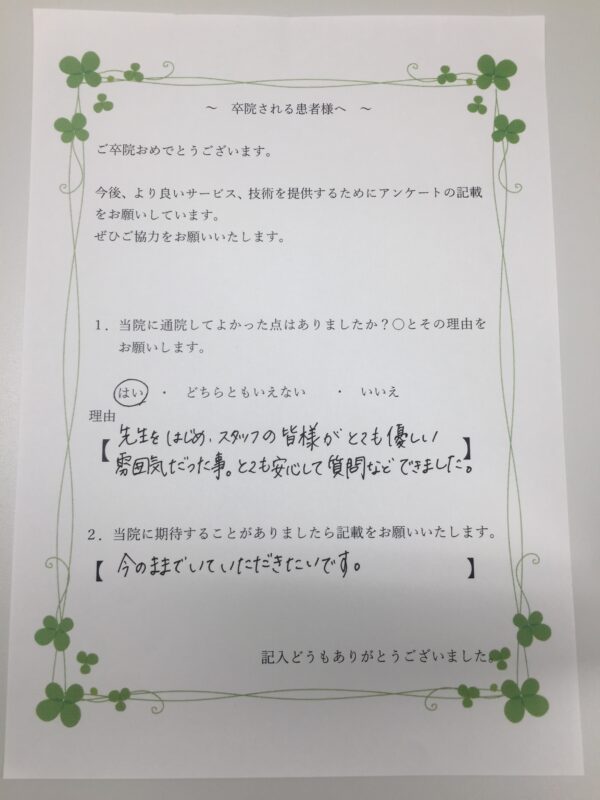 ～　卒院される患者様へ　～
ご卒院おめでとうございます。
今後、より良いサービス、技術を提供するためにアンケートの記載
をお願いしています。
ぜひご協力をお願いいたします。
１．当院に通院してよかった点はありましたか？〇とその理由を
お願いします。
はい　・　どちらともいえない　・　いいえ
理由
【先生をはじめ、スタッフの皆様がとても優しい
雰囲気だった事。とても安心して質問などできました。】
２．当院に期待することがありましたら記載をお願いいたします。
【今のままでいていただきたいです。】
記入どうもありがとうございました。